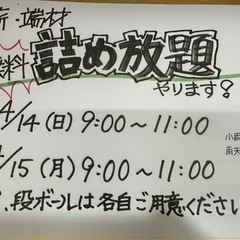 ・端材
料
詰め放題
やります!
/14(日) 9:00〜11:00
/15(月) 9:00〜11:00
段ボールは各自ご用意ください
小
雨天